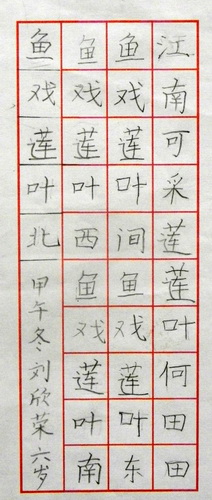 江南可采莲莲叶何田田
鱼戏莲叶间鱼戏莲叶东
鱼戏莲叶西鱼戏莲叶南
鱼戏莲叶北甲午冬刘欣荣六岁